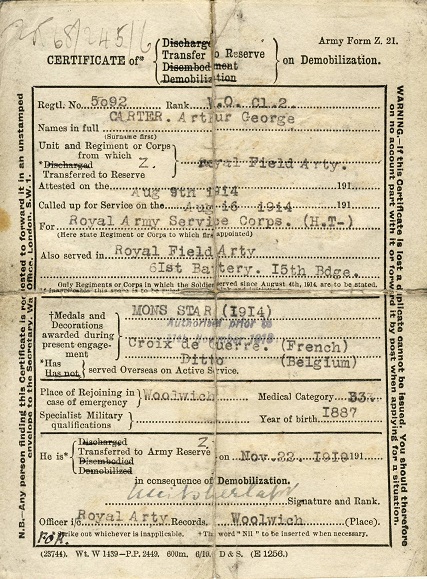 Army Form Z. 21.
CERTIFICATE of* Discharge Transfer to Reserve Disembodiment Demobilization on Demobilization.
Regtl. No. 5092 Rank W.O. Cl.2.
CARTER. Arthur George
Names in full
(Surname first)
Unit and Regiment or Corps
from which
*Discharged Z. Royal Field Arty.
Transferred to Reserve
Attested on the Aug 9th 1914 191
Called up for Service on the Aug 16 1914 191
For Royal Army Service Corps. (H.T-)
(Here state Regiment or Corps to which first appointed)
Also served in Royal Field Arty
61st Battery. 15th Bdge.
Only Regiments or Corps in the Soldier served since August 4th, 1914, are to be stated.
†Medals and
Decorations
awarded during
present engage-
ment
MONS STAR (1914)
Authorised prior to
Croix de Guerre. (French)
Ditto (Belgium)
*Has
Has not served Overseas on Active Service.
Place of Rejoining in
case of emergency Woolwich Medical Category B3.
Specialist Military
qualifications Year of birth 1887
He is* Discharged Transferred to Army Reserve Z. Disembodied Demobilized on Nov. 22. 1919 191
in consequence of Demobilization.
Signature and Rank.
Officer i/c Royal Arty. Records. Woolwich (Place).
*Strike out whichever is inapplicable. †The word "Nil" to be inserted when necessary.
(23744). Wt. W 1439—P.P. 2449. 600m. 6/19. D & S. (E 1256.)
N.B.—Any person finding this Certificate is requested to forward it in an unstamped
envelope to the Secretary, War Office, London, S.W. 1.
WARNING.—If this Certificate is lost a duplicate cannot be issued. You should therefore
on no account part with it or forward it by post when applying for a situation.